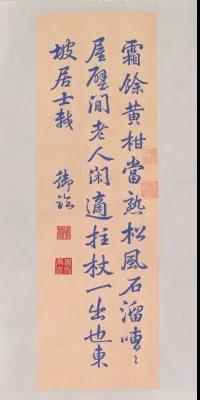 霜餘黃柑當熟松風石溜嘈〻
屋壁間老人閑適拄杖一出也東
坡居士軾
御臨